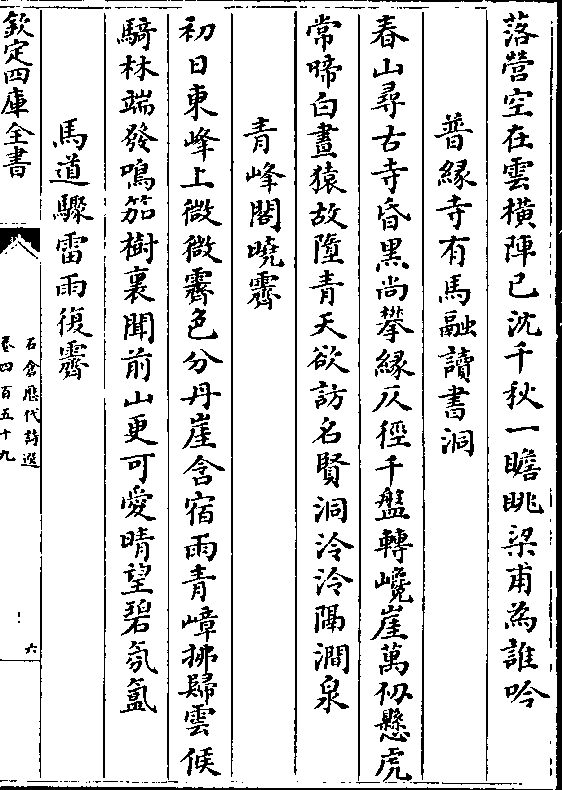 落營空在雲橫陣已沈千秋一瞻眺梁甫為誰吟
普緣寺有馬融讀書洞
春山尋古寺昏黑尚攀緣仄徑千盤轉巉崖萬仞懸虎
常啼白晝猿故墮青天欲訪名賢洞泠泠隔澗泉
青峰閣曉霽
初日東峰上微微霽色分丹崖含宿雨青嶂拂歸雲候
騎林端發鳴笳樹裏聞前山更可愛晴望碧氛氳
馬道驟雷雨復霽
欽定四庫全書
石倉歷代詩選
卷四百五十九
六